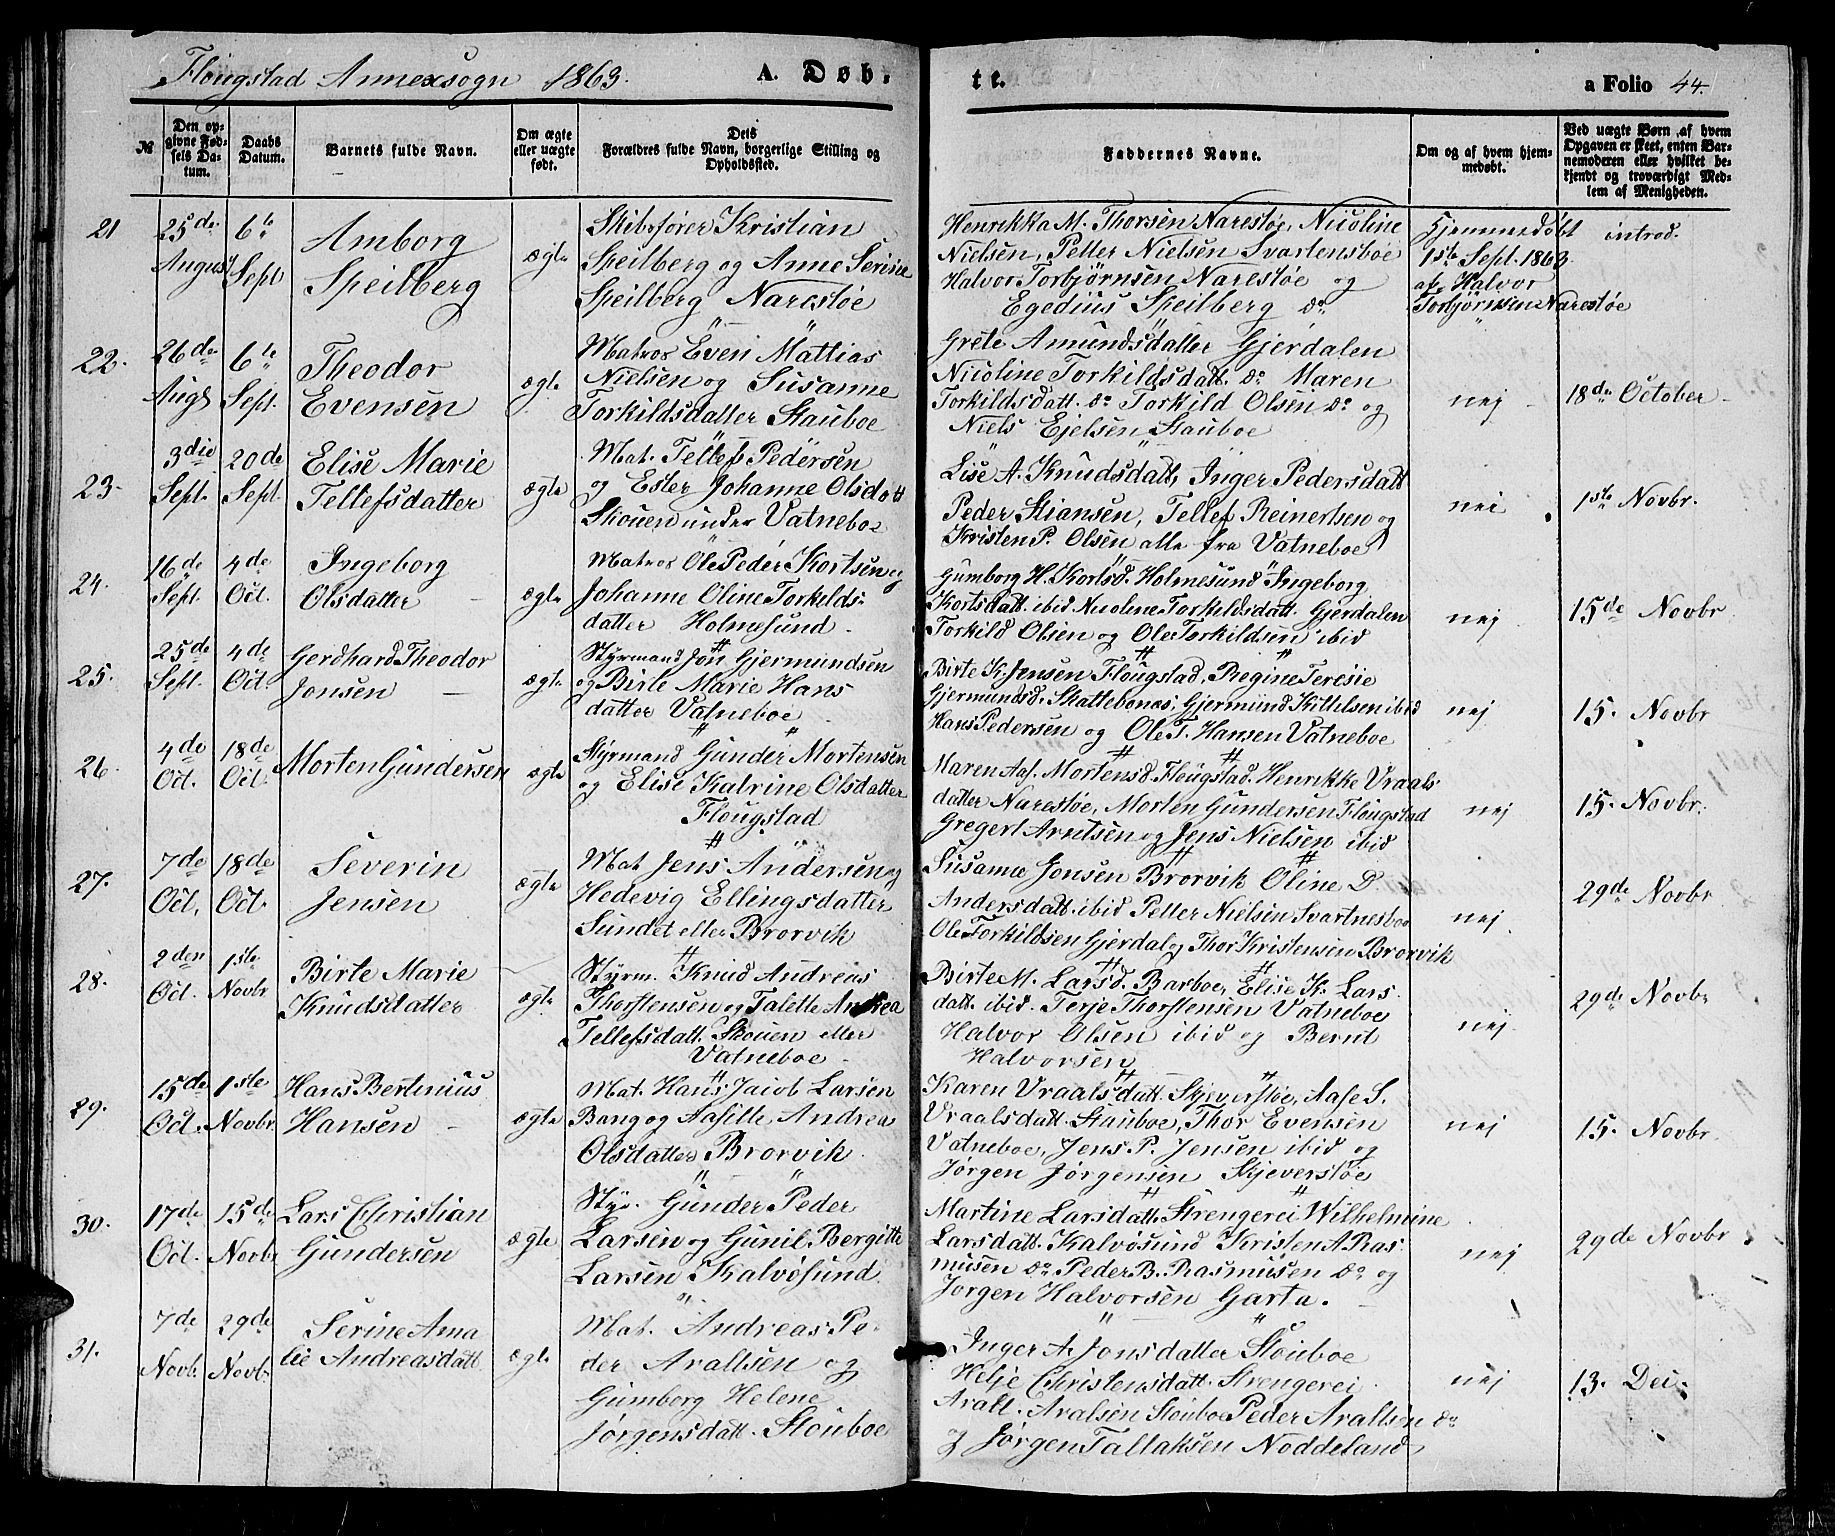 Flougstad Annexsogn 1863. A. Døb-
te. a Folio 44.
№
Den op-
givne Fød-
sels Da-
tum.
Daabs
Datum.
Barnets fulde Navn.
Om ægte
eller uægte
født.
Dets
Forældres fulde Navn, borgerlige Stilling og
Opholdssted.
Faddernes Navne.
Om og af hvem hjem-
medøbt.
Ved uægte Børn, af hvem
Opgaven er skeet, enten Bar-
nemoderen eller hvilket be-
kjendt og troværdigt Med-
lem af Menigheden.
21 25de August 6te Sept
Amborg
Speilberg
ægte
Skibsfører Kristian
Speilberg og Anne Serine
Speilberg Narestøe
Henrikka M. Thorsen Narestøe, Nicoline
Nielsen, Petter Nielsen Svartensboe
Halvor Torbjørnsen Narestøe og
Egedius Speilberg do
Hjemmedøbt
1ste Sept. 1863
af Halvor
Torbjørnsen Narestøe
introd.
22. 26de Augs 6te Sept.
Theodor
Evensen
ægte
Matros Even Mattias
Nielsen og Susanne
Torkildsdatter Stauboe
Grete Amundsdatter Gjerdalen
Nicoline Torkildsdatt. do Maren
Torkildsdatt. do Torkild Olsen do og
Niels Ejelsen Stauboe
nej
18de October
23. 3die Sept. 20de Sept.
Elise Marie
Tellefsdatter
ægte
Mat. Tellef Pedersen
og Ester Johanne Olsdatt
Skouen under Vatneboe
Lise A. Knudsdatt, Inger Pedersdatt
Peder Stiansen, Tellef Reinertsen og
Kristen P. Olsen alle fra Vatneboe
nei
1ste Novbr.
24. 16de Sept. 4de Oct.
Ingeborg
Olsdatter
ægte
Matros Ole Peder Kortsen og
Johanne Oline Torkilds-
datter Holmesund
Gumborg H. Kortsd. Holmesund Ingeborg
Kortsdatt. ibid Nicoline Torkildsdatt. Gjerdalen
Torkild Olsen og Ole Torkildsen ibid
nej
15de Novbr
25. 25de Sept. 4de Oct.
Gerdhard Theodor
Jonsen
ægte
Styrmand Jon Gjermundsen
og Birte Marie Hans
datter Vatneboe
Birte K. Jensen Flougstad, Regine Teresie
Gjermundsd. Skattebonas, Gjermund Kittelsen ibid
Hans Pedersen og Ole T. Hansen Vatneboe
nej
15. Novbr
26. 4de Oct. 18de Oct.
Morten Gundersen
ægte
Styrmand Gunder Mortensen
og Elise Katrine Olsdatter
Flougstad
Maren Aas. Mortensd. Flougstad. Henrikke Vraals
datter Narestøe, Morten Gundersen Flougstad
Gregert Arntsen og Jens Nielsen ibid
nej
15. Novbr.
27. 7de Oct. 18de Oct.
Severin
Jensen
ægte
Mat Jens Andersen og
Hedevig Ellingsdatter
Sundet eller Brorvik
Susanne Jonsen Brorvik Oline D.
Andersdatt. ibid Petter Nielsen Svartnesboe
Ole Torkildsen Gjerdal og Thor Kristensen Brorvik
nej
29de Novbr
28. 2den Oct. 1ste Novbr
Birte Marie
Knudsdatter
ægte
Styrm. Knud Andreas
Thorstensen og Talette Andrea
Tellefsdatt. Skouen eller
Vatneboe
Birte M. Larsd. Barboe, Elise K. Lars
datt. ibid. Terje Thorstensen Vatneboe
Halvor Olsen ibid og Bernt
Halvorsen
nej
29de Novbr
29. 15de Oct. 1ste Novbr.
Hans Bertinius
Hansen
ægte
Mat. Hans Jacob Larsen
Bang og Aasille Andrea
Olsdatter Brorvik
Karen Vraalsdatt. Skjeverstøe, Aase S.
Vraalsdatt. Stauboe, Thor Evensen
Vatneboe, Jens P. Jensen ibid og
Jørgen Jørgensen Skjeverstøe
nej
15. Novbr.
30. 17de Oct. 15de Novbr
Lars Christian
Gundersen
ægte
Styr. Gunder Peder
Larsen og Gunil. Bergitte
Larsen Kalvøsund
Martine Larsdatt. Strengerei Wilhelmine
Larsdatt. Kalvøsund Kristen A. Ras
musen do Peder B. Rasmusen do og
Jørgen Halvorsen Garta.
nej
29de Novbr
31. 7de Novb. 29de Novb.
Serine Ama
lie Andreasdatt
ægte
Mat. Andreas Pe-
der Araltsen og
Gumborg Helene
Jørgensdatt. Stouboe
Inger A. Jonsdatter Stouboe
Helje Christensdatt. Strengerei
Aralt. Aralsen Stouboe Peder Araltsen do
og Jørgen Tallaksen Noddeland
nej
13. Dec.